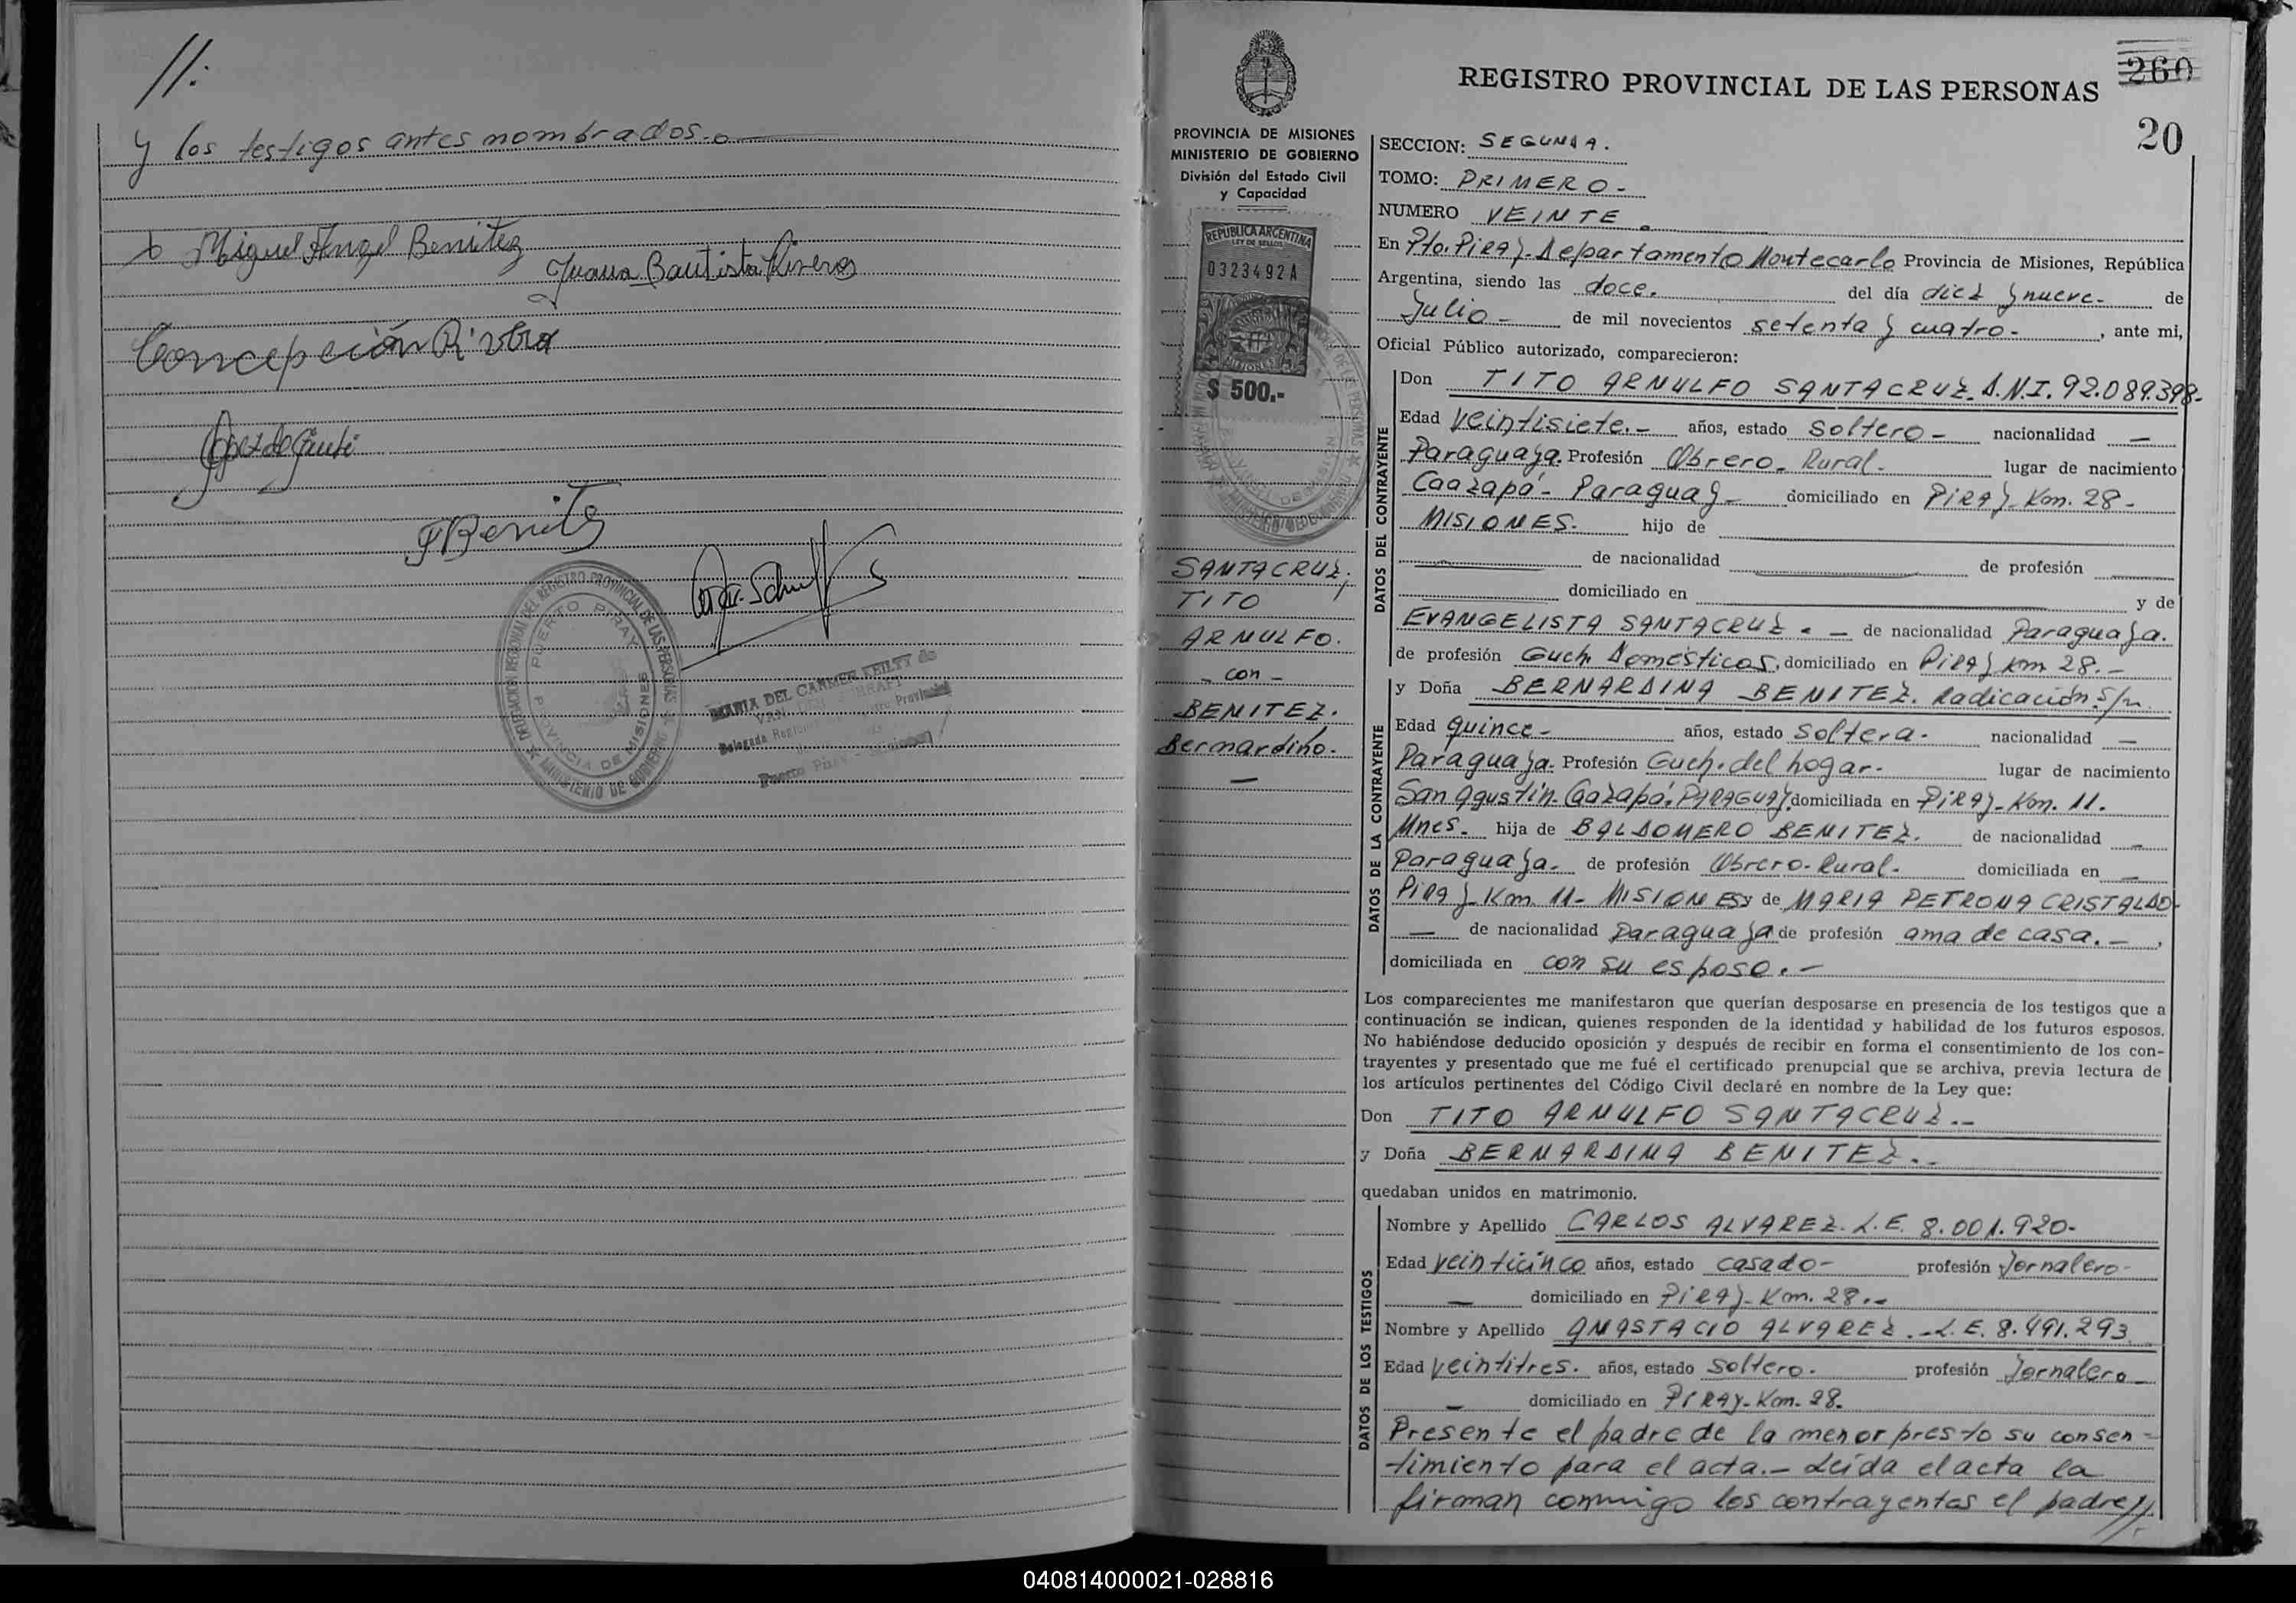 //.
y los testigos antes nombrados.o
x Miguel Angel Benitez
Juana Bautista Riveros
Concepción Rivera
Benitez
DELEGACION REGIONAL DEL REGISTRO PROVINCIAL DE LAS PERSONAS
PUERTO PIRAY
PROVINCIA DE MISIONES
MINISTERIO DE GOBIERNO
MARIA DEL CARMEN KEILTY de
VAN
Delegada
Puerto Piray - Misiones
260
REGISTRO PROVINCIAL DE LAS PERSONAS
20
PROVINCIA DE MISIONES
MINISTERIO DE GOBIERNO
División del Estado Civil
y Capacidad
REPUBLICA ARGENTINA
LEY DE SELLOS
0323492A
$ 500.-
SANTACRUZ,
TITO
ARNULFO.
- con -
BENITEZ.
Bernardino.
—
SECCION: SEGUNDA.
TOMO: PRIMERO-
NUMERO VEINTE.
En Pto. Piray. Departamento Montecarlo Provincia de Misiones, República
Argentina, siendo las doce. del día diez y nueve- de
Julio- de mil novecientos setenta y cuatro-, ante mi,
Oficial Público autorizado, comparecieron:
DATOS DEL CONTRAYENTE
Don TITO ARNULFO SANTACRUZ. D.N.I. 92.089.398-
Edad veintisiete.- años, estado soltero- nacionalidad —
Paraguaya. Profesión Obrero-Rural- lugar de nacimiento
Caazapá- Paraguay- domiciliado en PIRAY-Km. 28-
MISIONES. hijo de
de nacionalidad de profesión
domiciliado en y de
EVANGELISTA SANTACRUZ.- de nacionalidad Paraguaya.
de profesión Queh. Domésticos, domiciliado en Piray Km 28.-
DATOS DE LA CONTRAYENTE
y Doña BERNARDINA BENITEZ. Radicación. S/n.
Edad quince- años, estado soltera- nacionalidad —
Paraguaya. Profesión Queh. del hogar- lugar de nacimiento
San Agustín. Caazapá. PARAGUAY. domiciliada en PIRAY-Km. 11.
Mnes. hija de BALDOMERO BENITEZ. de nacionalidad —
Paraguaya. de profesión Obrero-Rural- domiciliada en —
Piray Km. 11- MISIONES y de MARIA PETRONA CRISTALDO-
— de nacionalidad paraguaya de profesión ama de casa.-,
domiciliada en con su esposo.-
Los comparecientes me manifestaron que querían desposarse en presencia de los testigos que a
continuación se indican, quienes responden de la identidad y habilidad de los futuros esposos.
No habiéndose deducido oposición y después de recibir en forma el consentimiento de los con-
trayentes y presentado que me fué el certificado prenupcial que se archiva, previa lectura de
los artículos pertinentes del Código Civil declaré en nombre de la Ley que:
Don TITO ARNULFO SANTACRUZ.-
y Doña BERNARDINA BENITEZ.-
quedaban unidos en matrimonio.
DATOS DE LOS TESTIGOS
Nombre y Apellido CARLOS ALVAREZ. L.E. 8.001.920-
Edad veinticinco años, estado casado- profesión Jornalero-
— domiciliado en PIRAY-Km. 28.-
Nombre y Apellido ANASTACIO ALVAREZ.-L.E. 8.491.293
Edad veintitres. años, estado soltero. profesión Jornalero-
— domiciliado en PIRAY-Km-28.
Presente el padre de la menor presto su consen-
-timiento para el acta.- Leída el acta la
firman conmigo los contrayentes el padre//.
040814000021-028816